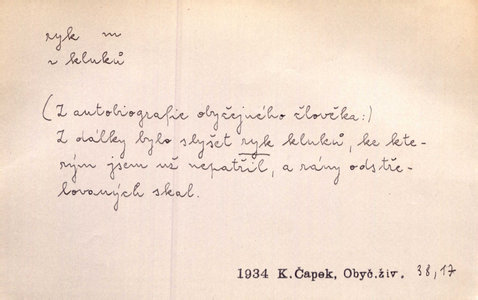 ryk m
v kluků
(Z autobiografie obyčejného člověka:)
Z dálky bylo slyšet ryk kluků, ke kte-
rým jsem už nepatřil, a rány odstře-
lovaných skal.
1934 K.Čapek, Obyč.živ. 38,17